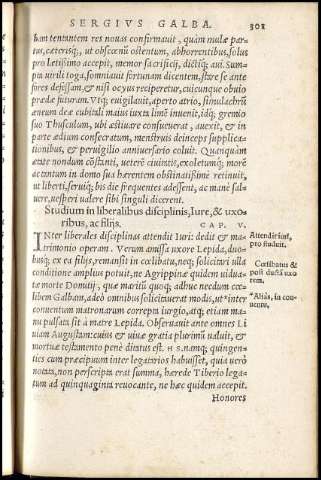 SERGIVS GALBA. 301
bam tentantem res nouas confirmauit, quàm mulæ partus,
cæterisq;, ut obscœnũ ostentum, abhorrentibus, solus
pro lætissimo accepit, memor sacrificij, dictiq; aui. Sumpta
uirili toga, somniauit fortunam dicentem, stare se ante
fores defessam, & nisi ocyus reciperetur, cuicunque obuio
prædæ futuram. Vtq; euigilauit, aperto atrio, simulachrũ
æneum deæ cubitali maius iuxta limẽ inuenit, idq; gremio
suo Thusculum, ubi æstiuare consueuerat, auexit, & in
parte ædium consecratum, menstruis deinceps supplicationibus,
& peruigilio anniuersario coluit. Quanquam
ætate nondum cõstanti, ueterẽ ciuitatis, exoletumq; morẽ
ac tantum in domo sua hærentem obstinatißimè retinuit,
ut liberti, seruiq; bis die frequentes adessent, ac manè saluere,
uesperi ualere sibi singuli dicerent.
Studium in liberalibus disciplinis, Iure, & uxoribus,
ac filijs. CAP. V.
INter liberales disciplinas attendit Iuri: dedit & matrimonio
operam. Verùm amissa uxore Lepida, duobusq;
ex ea filijs, remansit in cœlibatu, neq; solicitari ulla
conditione amplius potuit, ne Agrippinæ quidem uiduatæ
morte Domitij, quæ mariti quoq; adhuc necdum cœlibem
Galbam, adeò omnibus solicitauerat modis, ut *inter
conuentum matronarum correpta iurgio, atq; etiam manu
pulsata sit à matre Lepida. Obseruauit ante omnes Liuiam
Augustam: cuius & uiuæ gratia plurimũ ualuit, &
mortuæ testamento penè ditatus est. H S. namq; quingenties
cum præcipuum inter legatarios habuisset, quia uerò
notata, non perscripta erat summa, hærede Tiberio legatum
ad quinquaginta reuocante, ne hæc quidem accepit.
Honores
Attendit iuri,
pro studuit.
Cœlibatus &
post ductã uxorem.
*Aliàs, in conuentu.